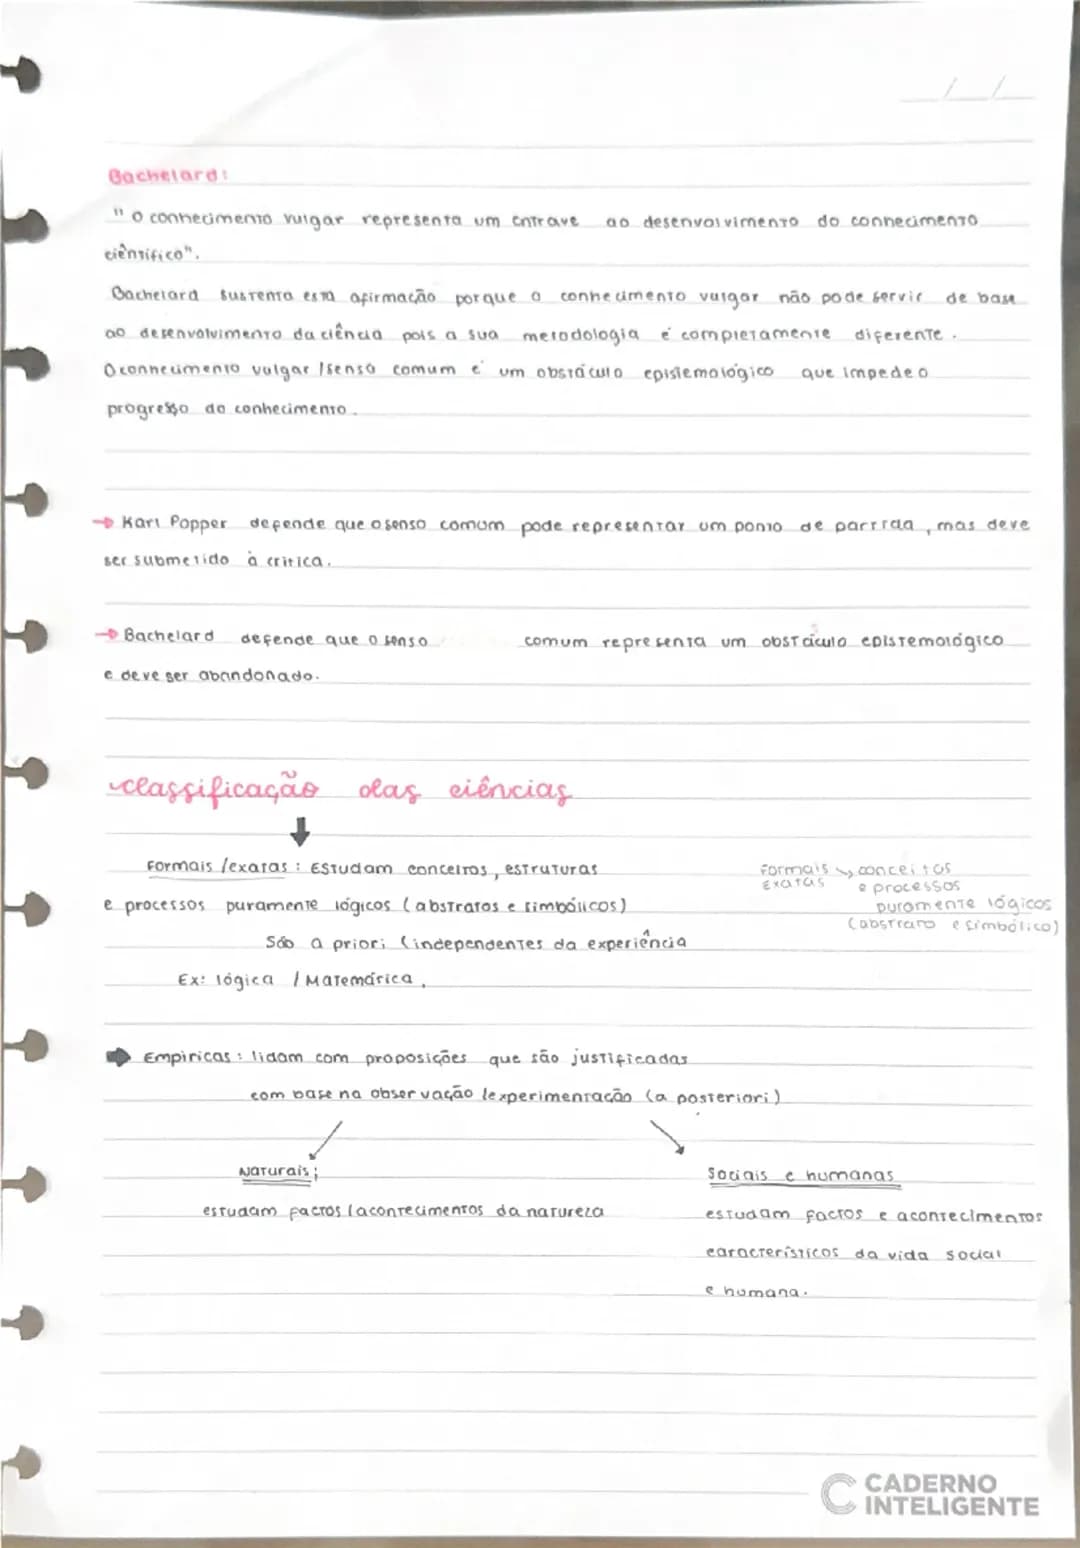 Bachelard:
" O conhecimento vulgar representa um entrave ao desenvolvimento do conhecimento
científico".
Bachelard sustenta esta afirmação porque o conhecimento vulgar não pode servir de base
ao desenvolvimento da ciência pois a sua metodologia é completamente diferente.
O conhecimento vulgar /senso comum é um obstáculo epistemológico que impede o
progresso do conhecimento.
→ Karl Popper defende que o senso comum pode representar um ponto de partida, mas deve
ser submetido à crítica.
→ Bachelard defende que o senso comum representa um obstáculo epistemológico
e deve ser abandonado.
classificação das ciências
↓
Formais /exatas : Estudam conceitos, estruturas
e processos puramente lógicos (abstratos e simbólicos)
São a priori (independentes da experiência
Ex: lógica / Matemática.
Formais ↘ conceitos
Exatas e processos
puramente lógicos
(abstrato e simbólico)
➡ Empíricas : lidam com proposições que são justificadas
com base na observação /experimentação (a posteriori)
Naturais;
estudam factos /acontecimentos da natureza
Sociais e humanas
estudam factos e acontecimentos
característicos da vida social
e humana.
CADERNO
INTELIGENTE